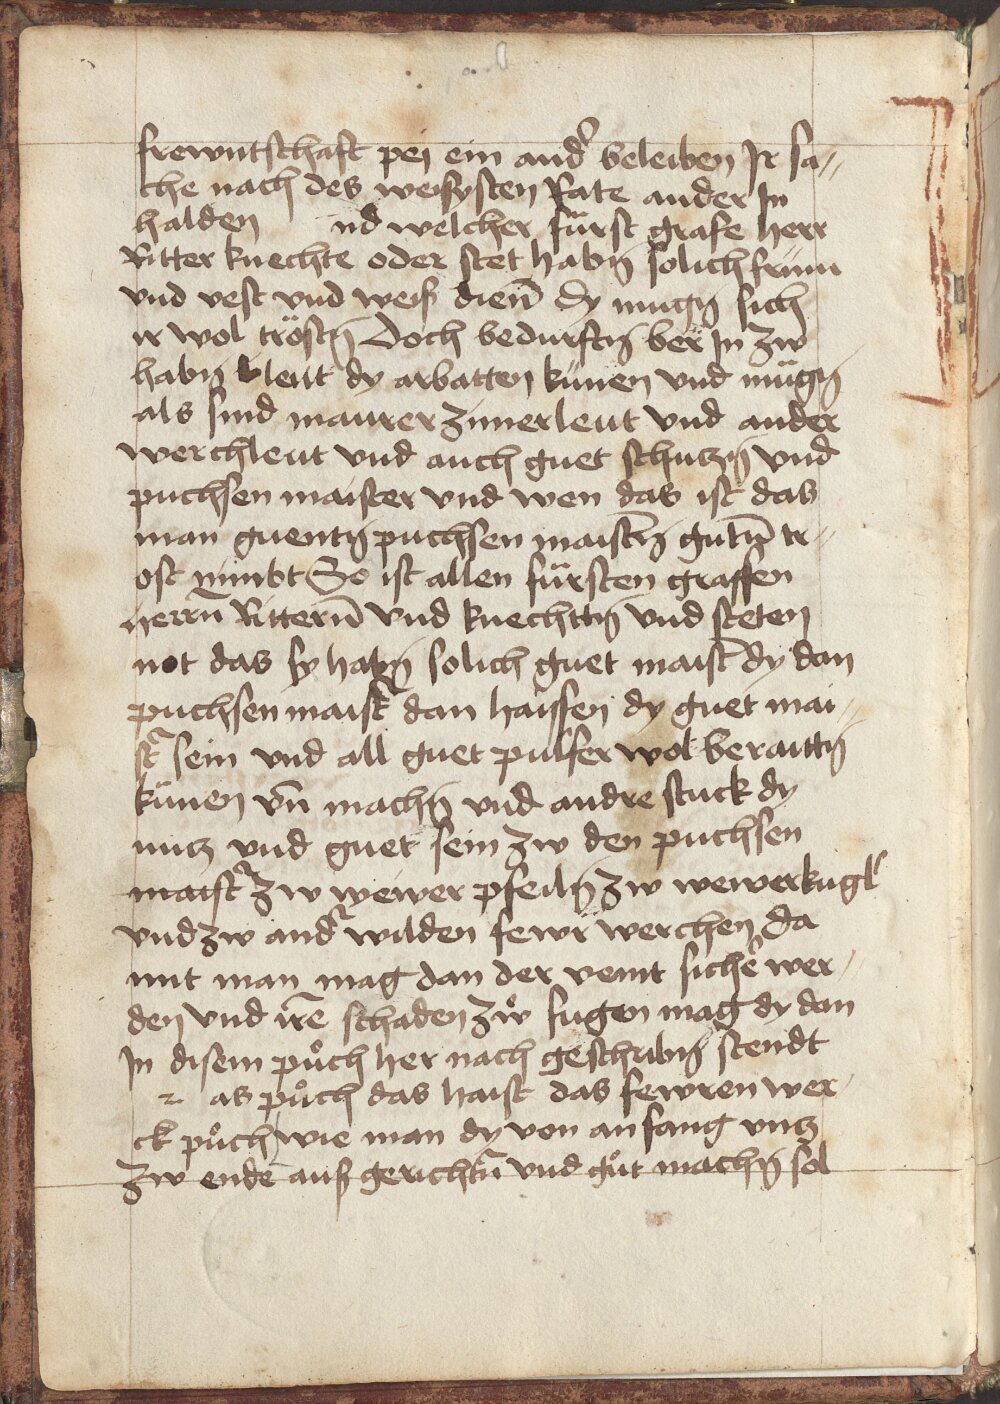 frewntschaft pej ein and̾ beleiben Ir sa⸗
che nach des weysysten Rate ander In
halden nd welcher fürst grafe herr
Ritter knechte oder stet habñ solich frum
vnd vest vnd weiß dieñ dy mugñ sich
ir wol tröstñ doch bedurftñ ber In zw
habñ leut dy arbatten künen vnd mügñ
als sind maurer zimerleut vnd ander
werchleut vnd auch guet schutzñ vnd
puchsen maister vnd wen das ist das
man guentñ puchsen maist̄ñ gut̄n tr⸗
ost nimbt So ist allen fürsten graffen
herrñ Ritterñ vnd knechttñ vnd steten
not das sy habñ solich guet maist̄ dy dan
puchsen maist̾ dan haissen dy guet mai⸗
st̾ sein vnd all guet pulfer wol beraittñ
künen vn̄ machñ vnd andre stuck dy
nutz vnd guet sein zw den puchsen
maist̾ zw wewer pfeilñ zw wewerkugl̾
vnd zw and̾ wilden fewr werchen Da
mit man mag dan der veint sich̾e wer⸗
den vnd ir̄e schaden zẘ fugen mag dy dan
In disem půch her nach geschribñ stendt
as půch das haist das fewren wer⸗
ck půch wie man dy von anfang vntz
zw ende auß gericht̄n vnd gůt machñ sol